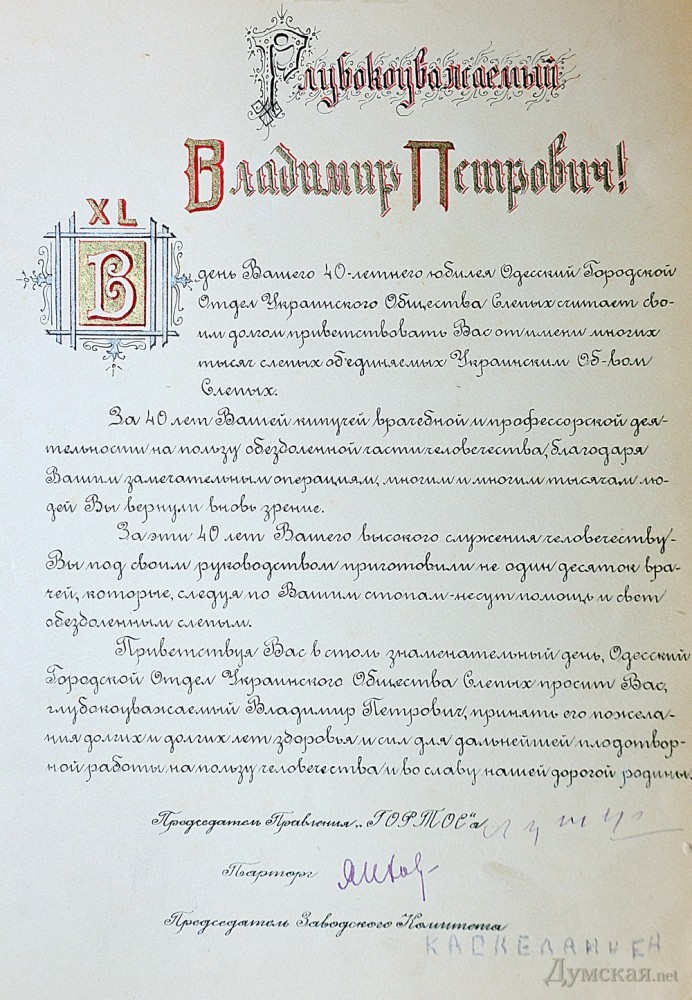 Глубокоуважаемый
Владимир Петрович!
XL
В день Вашего 40-летнего юбилея Одесский Городской
Отдел Украинского Общества Слепых считает сво-
им долгом приветствовать Вас от имени многих
тысяч слепых объединяемых Украинским Об-вом
Слепых.
За 40 лет Вашей кипучей врачебной и профессорской дея-
тельности на пользу обездоленной части человечества, благодаря
Вашим замечательным операциям, многим и многим тысячам лю-
дей Вы вернули вновь зрение.
За эти 40 лет Вашего высокого служения человечеству-
Вы под своим руководством приготовили не один десяток вра-
чей, которые, следуя по Вашим стопам-несут помощь и свет
обездоленным слепым.
Приветствуя Вас в столь знаменательный день, Одесский
Городской Отдел Украинского Общества Слепых просит Вас,
глубокоуважаемый Владимир Петрович, принять его пожела-
ния долгих и долгих лет здоровья и сил для дальнейшей плодотвор-
ной работы на пользу человечества и во славу нашей дорогой родины.
Председатель Правления „ГОРТОС"а
Парторг
Председатель Заводского Комитета
Думская.net